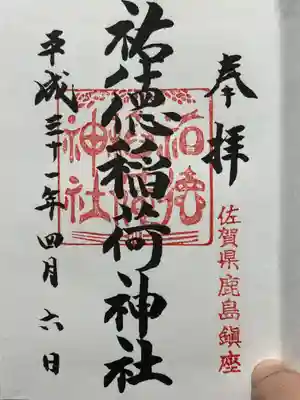 奉拝
佐賀県鹿島鎮座
祐徳稲荷神社
祐徳稲荷神社
平成三十一年四月六日